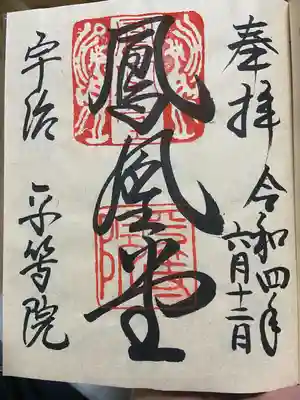 奉拝
令和四年
六月十二日
鳳凰堂
宇治 平等院